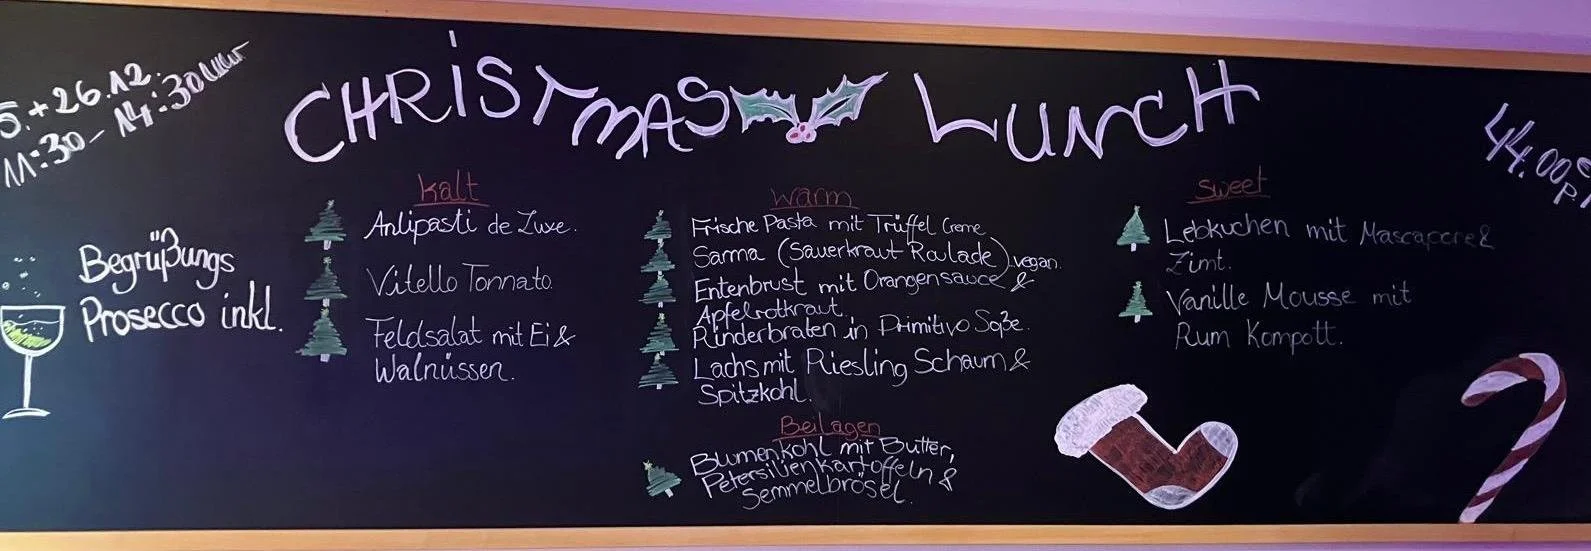 5.+26.12.
11:30-14:30 Uhr
CHRISTMAS LUNCH
44.00€
p.P
Begrüßungs
Prosecco inkl.
Kalt
Antipasti de Luxe.
Vitello Tonnato
Feldsalat mit Ei &
Walnüssen.
Warm
Frische Pasta mit Trüffel Creme
Sarma (Sauerkraut Roulade) vegan.
Entenbrust mit Orangensauce &
Apfelrotkraut.
Rinderbraten in Primitivo Soße.
Lachs mit Riesling Schaum &
Spitzkohl.
Beilagen
Blumenkohl mit Butter,
Petersilienkartoffeln &
Semmelbrösel.
Sweet
Lebkuchen mit Mascapore &
Zimt.
Vanille Mousse mit
Rum Kompott.